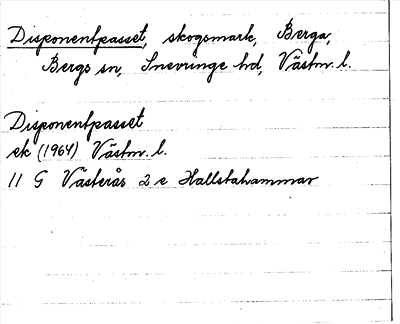 Disponentpasset, skogsmark, Berga,
Bergs sn, Snevringe hd, Västm. l.
Disponentpasset
ek (1964) Västm. l.
11 G Västerås 2 e Hallstahammar